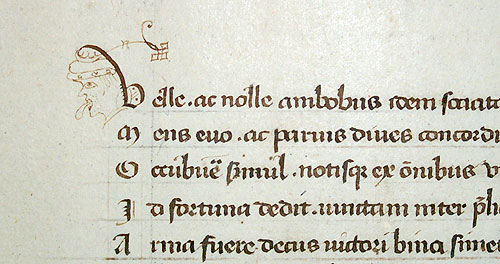 Velle . ac nolle ambobus idem sociat
Mens euo . ac paruis diues concordi
Occubuē simul . uotisqꝫ ex ōnibus v
Id fortuna dedit . iunctam inter p̄li
Arma fuere decus uictori bina simet